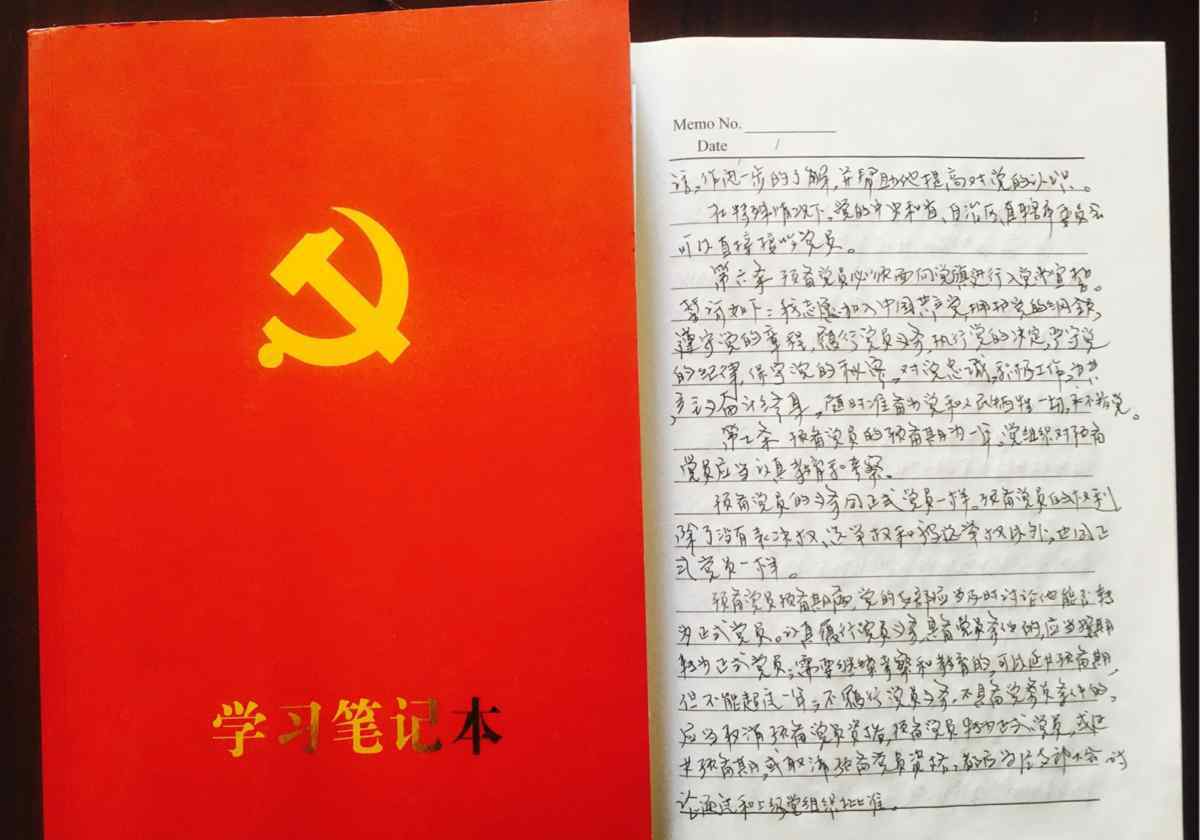 学习笔记本
Memo No.
Date /
话,作进一步的了解,并帮助他提高对党的认识。
在特殊情况下,党的中央和省、自治区、直辖市委员会
可以直接接收党员。
第六条 预备党员必须面向党旗进行入党宣誓。
誓词如下:我志愿加入中国共产党,拥护党的纲领,
遵守党的章程,履行党员义务,执行党的决定,严守党
的纪律,保守党的秘密,对党忠诚,积极工作,为共
产主义奋斗终身,随时准备为党和人民牺牲一切,永不叛党。
第七条 预备党员的预备期为一年。党组织对预备
党员应当认真教育和考察。
预备党员的义务同正式党员一样。预备党员的权利,
除了没有表决权、选举权和被选举权以外,也同正
式党员一样。
预备党员预备期满,党的支部应当及时讨论他能否转
为正式党员。认真履行党员义务,具备党员条件的,应当按期
转为正式党员;需要继续考察和教育的,可以延长预备期,
但不能超过一年;不履行党员义务,不具备党员条件的,
应当取消预备党员资格。预备党员转为正式党员,或延
长预备期,或取消预备党员资格,都应当经支部大会讨
论通过和上级党组织批准。